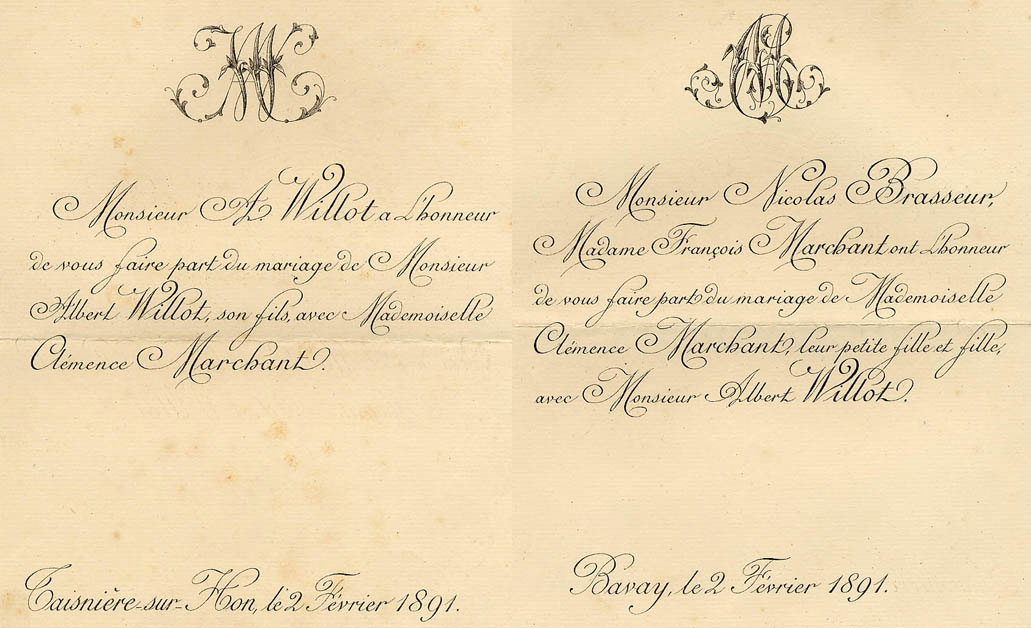 Monsieur A Willot a l'honneur
de vous faire part du mariage de Monsieur
Albert Willot, son fils, avec Mademoiselle
Clémence Marchant.
Taisnière-sur-Hon, le 2 Février 1891.
Monsieur Nicolas Brasseur,
Madame François Marchant ont l'honneur
de vous faire part du mariage de Mademoiselle
Clémence Marchant, leur petite fille et fille,
avec Monsieur Albert Willot.
Bavay, le 2 Février 1891.